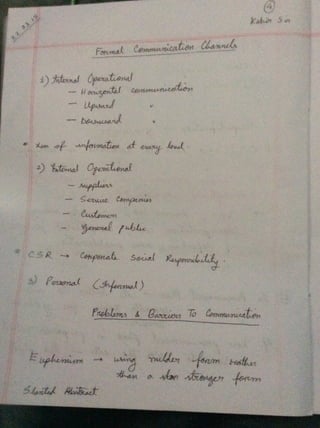 4
Kabir Sir
Formal Communication Channels
1) Internal Operational
- Horizontal communication
- Upward "
- Downward "
* of information at every level
2) External Operational
- suppliers
- Service Companies
- Customers
- general public
* CSR → Corporate Social Responsibility.
3) Personal (Informal)
Problems & Barriers To Communication
Euphemism → using milder form rather
than a stronger form
Slanted Abstract